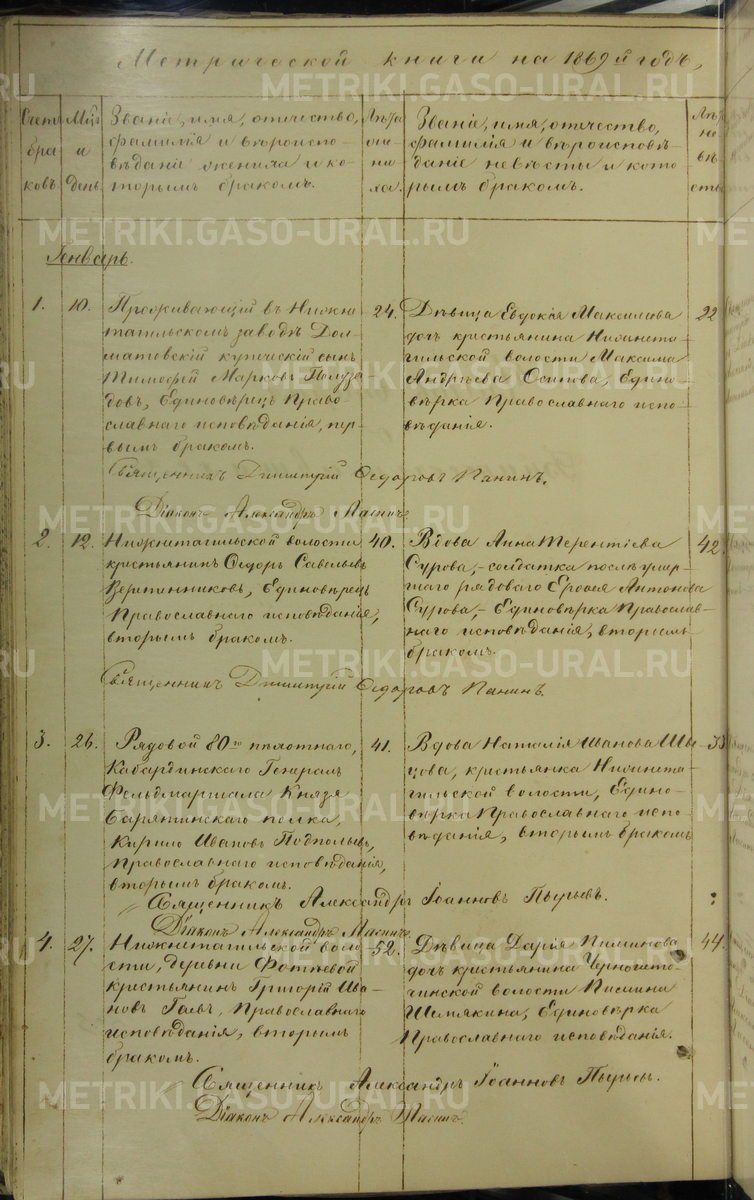 Метрической книги на 1869й годъ,
Счетъ браковъ
Мѣс. и день.
Званіе, имя, отчество, фамилія и вѣроиспо-
вѣданіе жениха и ко-
торымъ бракомъ.
Лѣта жениха.
Званіе, имя, отчество,
фамилія и вѣроисповѣ-
даніе невѣсты и кото-
рымъ бракомъ.
Лѣта невѣсты
Генварь.
1. 10.
Проживающій въ Нижне
тагильскомъ заводѣ Дол-
матовскій купеческій сынъ
Тимофей Марковъ
довъ, Единовѣрецъ Право-
славнаго исповѣданія, пер-
вымъ бракомъ.
24.
Дѣвица Евдокія Максимова
дочь крестьянина Нижнета-
гильской волости Максима
Андрѣева Осипова, Едино-
вѣрка Православнаго испо-
вѣданія.
22
Священникъ Димитрій Ѳедоровъ Панинъ.
Діаконъ Александръ
2. 12.
Нижнетагильской волости
крестьянинъ Ѳедоръ Савельевъ
Единовѣрецъ
Православнаго исповѣданія,
вторымъ бракомъ.
40.
Вдова Анна Терентіева
Сурова,- солдатка послѣ умер-
шаго рядоваго Ерофея Антонова
Сурова,- Единовѣрка Православ-
наго исповѣданія, вторымъ
бракомъ.
42.
Священникъ Димитрій Ѳедоровъ Панинъ.
3. 26.
Рядовой 80го пѣхотнаго,
Кабардинскаго Генералъ
Фельдмаршала Князя
Барятинскаго полка,
Кирило Ивановъ
Православнаго исповѣданія,
вторымъ бракомъ.
41.
Вдова Наталія Иванова
крестьянка Нижнета-
гильской волости, Едино-
вѣрка Православнаго испо-
вѣданія, вторымъ бракомъ
33
Священникъ Александръ Іоанновъ Пырьевъ.
Діаконъ Александръ
4. 27.
Нижнетагильской воло-
сти, деревни Фотѣевой
крестьянинъ Григорій Ива-
новъ Гаевъ, Православнаго
исповѣданія, вторымъ
бракомъ.
52.
Дѣвица Дарія Пиминова
дочь крестьянина Черноисто-
чинской волости Пимина
Шемякина, Единовѣрка
Православнаго исповѣданія.
44.
Священникъ Александръ Іоанновъ Пырьевъ.
Діаконъ Александръ
METRIKI.GASO-URAL.RU